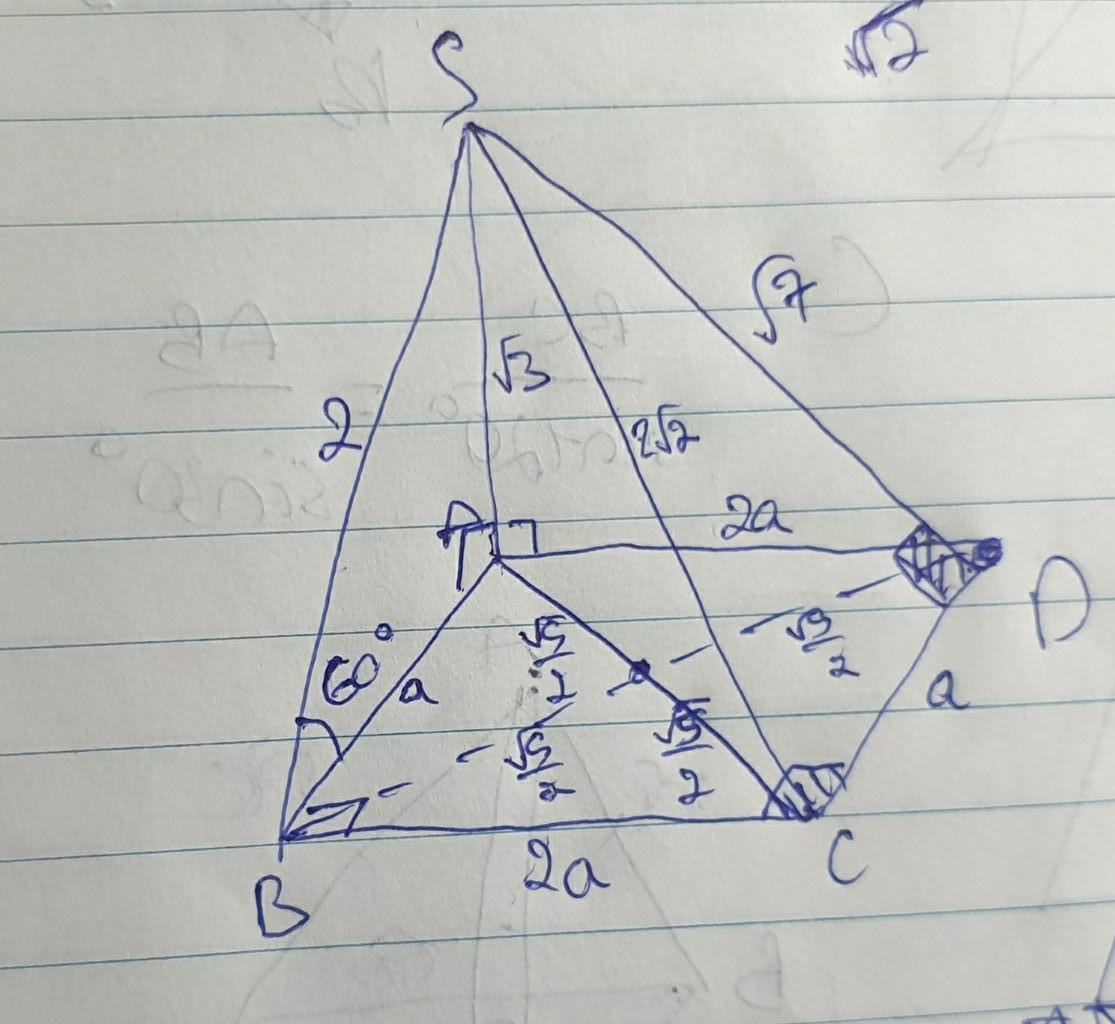 √2
S
√7
√3
2
2√2
A
2a
D
60°
a
√5/2
√5/2
a
√5/2
√5/2
B
2a
C